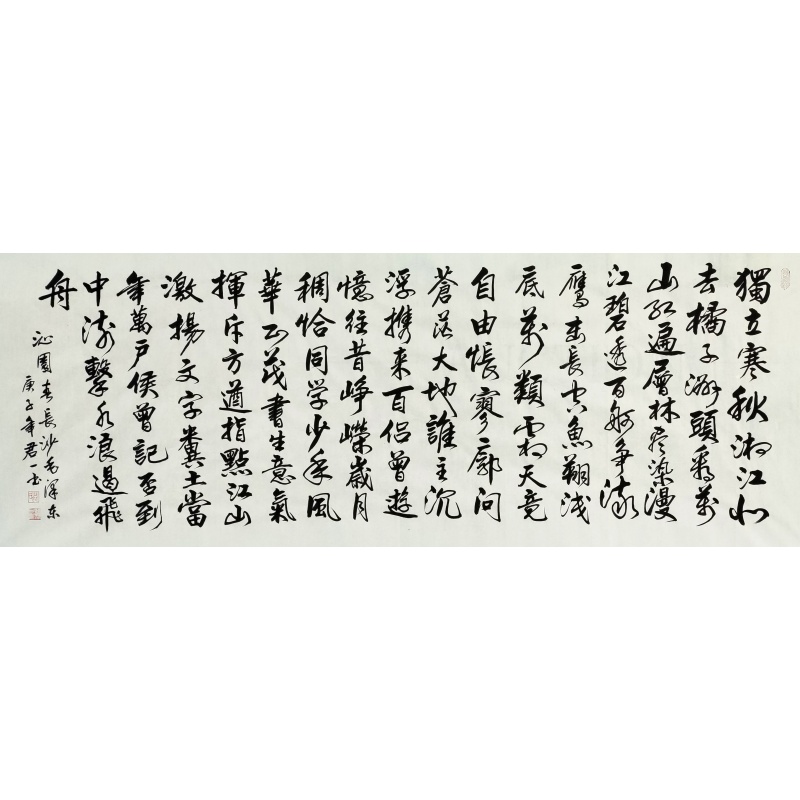 獨立寒秋湘江北
去橘子洲頭看萬
山紅遍層林盡染漫
江碧透百舸爭流
鷹擊長空魚翔淺
底萬類霜天竟
自由悵寥廓問
蒼茫大地誰主沉
浮携来百侶曾遊
憶往昔崢嶸歲月
稠恰同学少年風
華正茂書生意氣
揮斥方遒指點江山
激揚文字糞土當
年萬户侯曾記否到
中流擊水浪遏飛
舟
沁園春長沙毛澤东
庚子年君一书